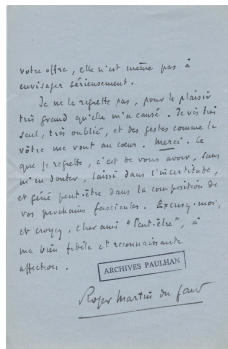 votre offre, elle n'est même pas à
envisager sérieusement.
Je ne le regrette pas, pour le plaisir
très grand qu'elle m'a causé. Je vis très
seul, très oublié, et des gestes comme le
vôtre me vont au cœur. Merci. Ce
que je regrette, c'est de vous avoir, sans
m'en douter, laissé dans l'incertitude,
et gêné peut-être dans la composition de
vos prochains fascicules. Excusez-moi,
et croyez, cher ami "Peut-être", à
ma bien fidèle et reconnaissante
affection.
ARCHIVES PAULHAN
Roger Martin du Gard